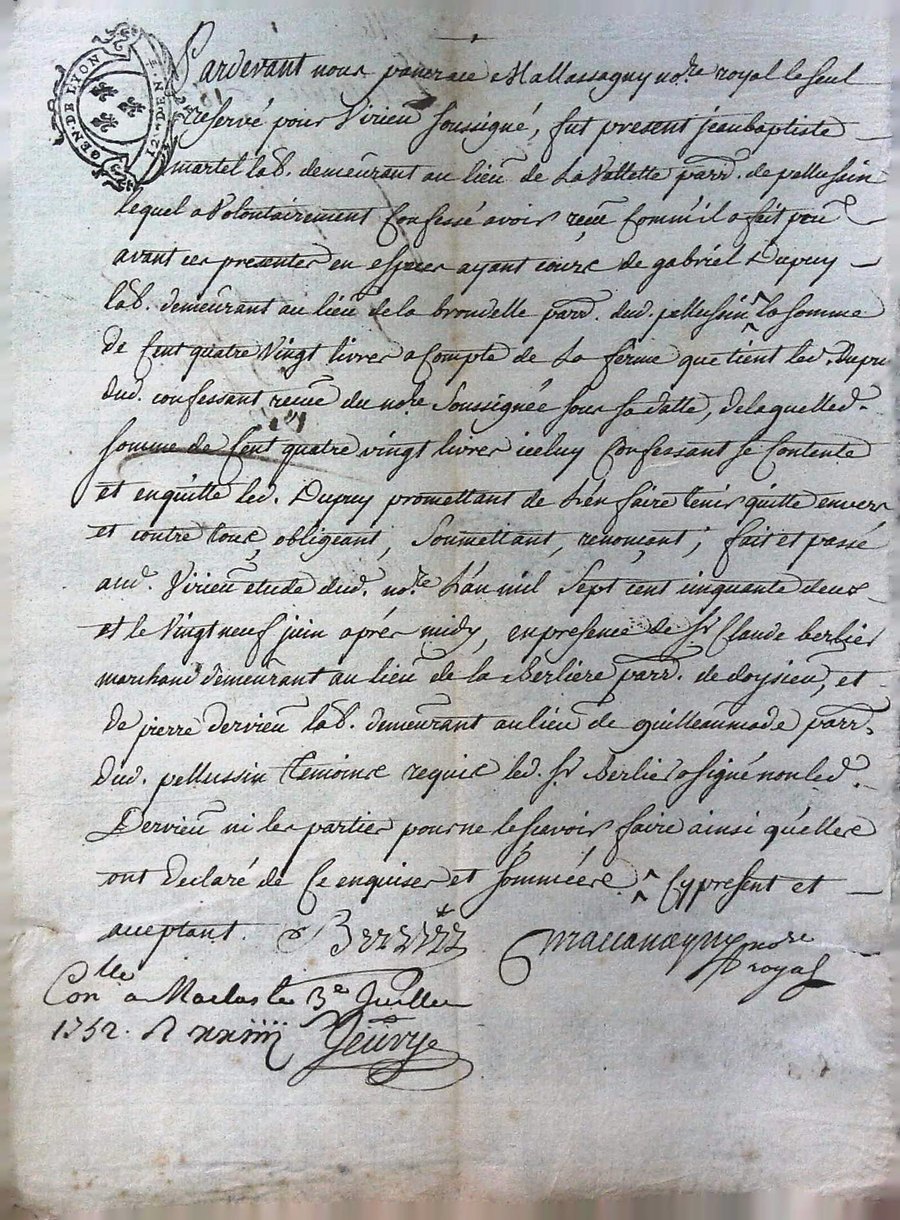 GEN. DE LYON
12. DEN
Pardevant nous pancrace Mallassagny no.re royal le seul
reservé pour Virieu soussigné, fut present jeanbaptiste
martel lab. demeurant au lieu de la Vallette parr. de pellussin
lequel a Volontairement Confessé avoir reçeu Comm'il a fait
avant ces presentes en especes ayant cours de gabriel Dupuy
lab. demeurant au lieu de la brondelle parr. dud. pellussin ^ la somme
de Cent quatre Vingt livres a Compte de La ferme que tient led. Dupuy
dud. confessant reçue du no.re Soussignée sous sa datte, delaquelled.
somme de Cent quatre vingt livres iceluy Confessant se Contente
et en quitte led. Dupuy promettant de L'en faire tenir quitte envers
et contre tous, obligeant, soumettant, renonçant; fait et passé
aud. Virieu etude dud. no.re L'an mil Sept cent cinquante deux
et le Vingt neuf juin aprés midy, en presence de Sr Claude berlier
marchand demeurant au lieu de la Berliere parr. de doysieu, et
de pierre dervieu lab. demeurant au lieu de guilleaumade parr.
dud. pellussin temoins requis led. Sr Berlier a signé non led.
Dervieu ni les parties pour ne le sçavoir faire ainsi qu'elles
ont Declaré de Ce enquises et sommées ^ Cy present et
acceptant.
no.re
royal
Con.lle a Maclas le 3e Juillet
1752. R xxiiij